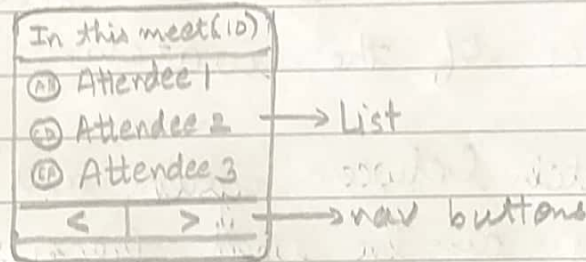 In this meet(10)
AB Attendee 1
CD Attendee 2 → List
EF Attendee 3
< > → nav buttons